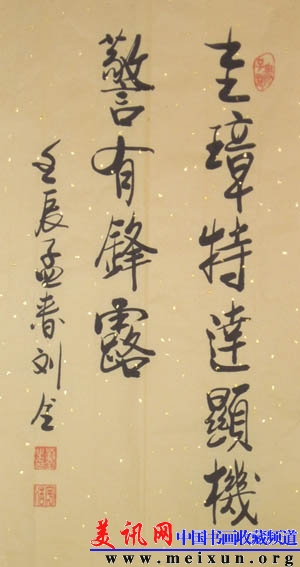 圭璋特達顯機
警有鋒露
壬辰孟春刘念
美讯网 中国书画收藏频道
www.meixun.org